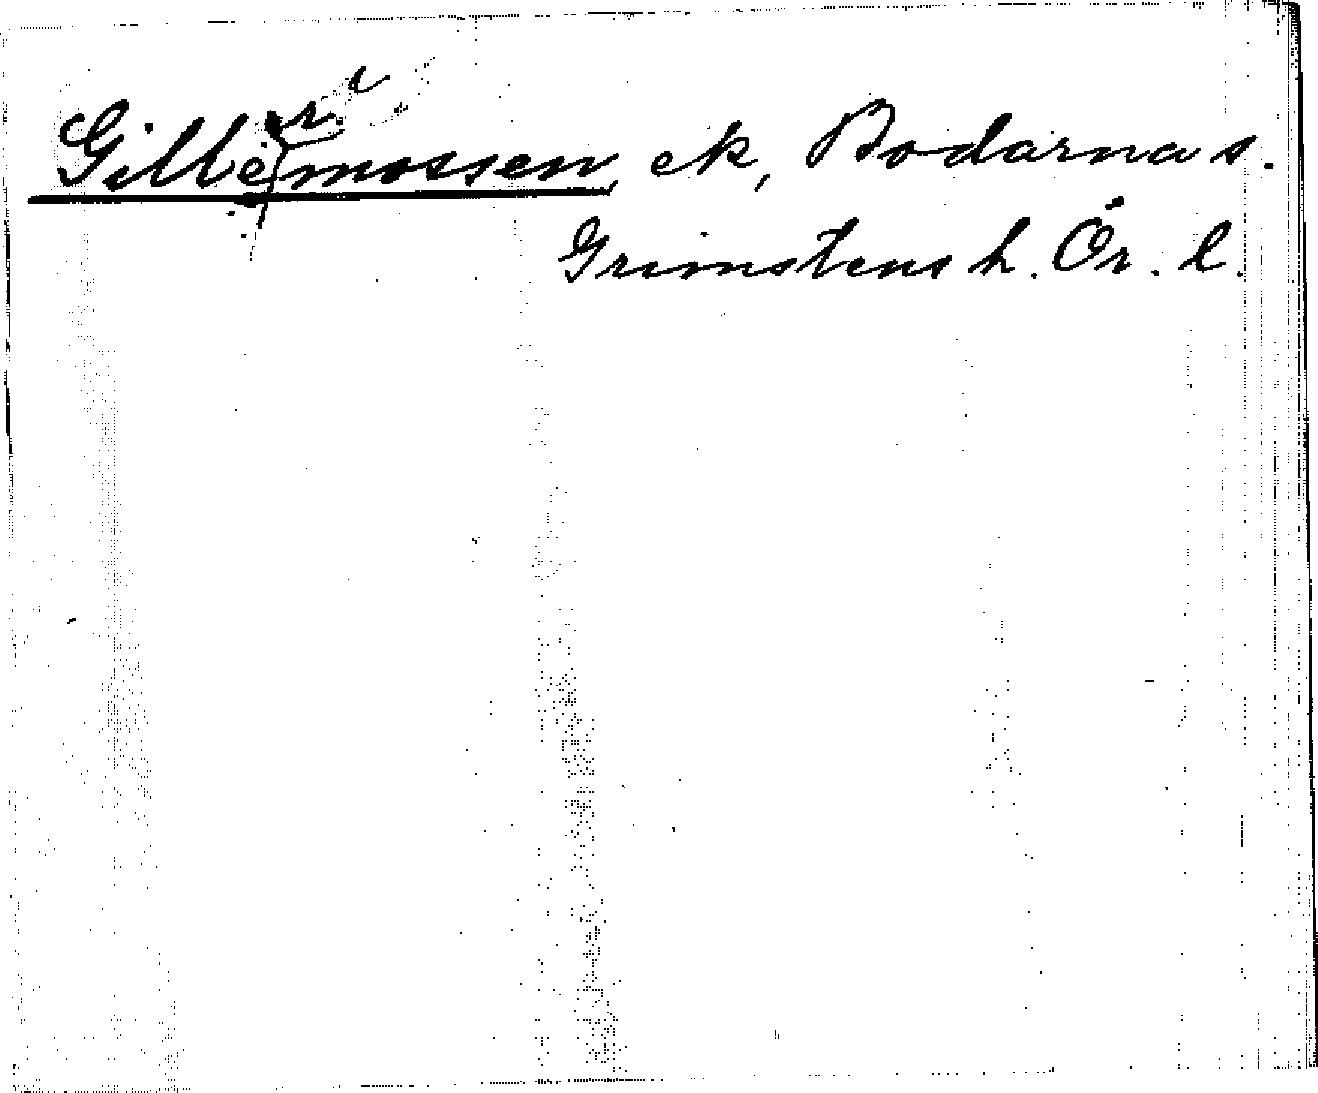 Gillermossen, ek, Bodarna s.
Grimstens h. Ör. l.